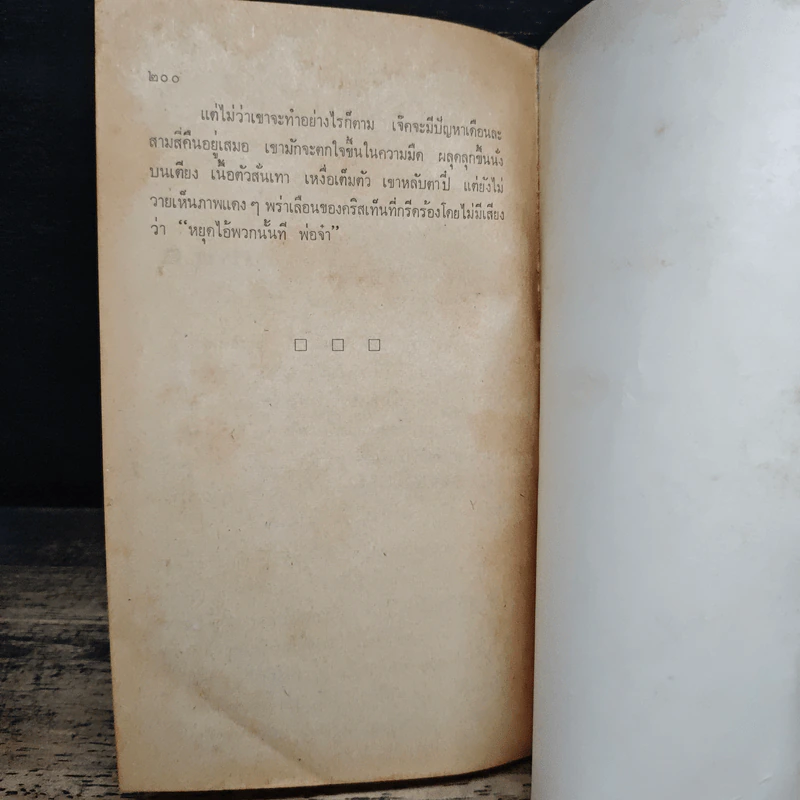 ๒๐๐
แต่ไม่ว่าเขาจะทำอย่างไรก็ตาม เจ๊คจะมีปัญหาเดือนละ
สามสี่คืนอยู่เสมอ เขามักจะตกใจขึ้นในความมืด ผลุดลุกขึ้นนั่ง
บนเตียง เนื้อตัวสั่นเทา เหงื่อเต็มตัว เขาหลับตาปี๋ แต่ยังไม่
วายเห็นภาพแดง ๆ พร่าเลือนของคริสเท็นที่กรีดร้องโดยไม่มีเสียง
ว่า “หยุดไอ้พวกนั้นที พ่อจ๋า”